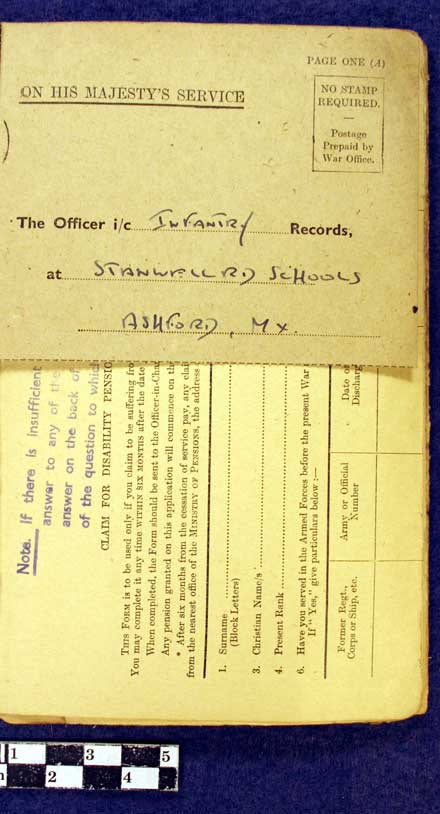 PAGE ONE (A)
ON HIS MAJESTY'S SERVICE
NO STAMP
REQUIRED.
—
Postage
Prepaid by
War Office.
The Officer i/c INFANTRY Records,
at STANWELL RD SCHOOLS
ASHFORD, MX.
Note. If there is insufficient
answer to any of the
answer on the back of
of the question to which
CLAIM FOR DISABILITY PENSIO
THIS FORM is to be used only if you claim to be suffering fro
You may complete it any time WITHIN SIX MONTHS after the date
When completed, the Form should be sent to the Officer-in-Cha
Any pension granted on this application will commence on th
* After six months from the cessation of service pay, any clai
from the nearest office of the MINISTRY OF PENSIONS, the address
1. Surname
(Block Letters)
3. Christian Name/s
4. Present Rank
6. Have you served in the Armed Forces before the present War
If "Yes," give particulars below :—
Former Regt.,
Corps or Ship, etc.
Army or Official
Number
Date o
Discharg
1 3 5
2 4